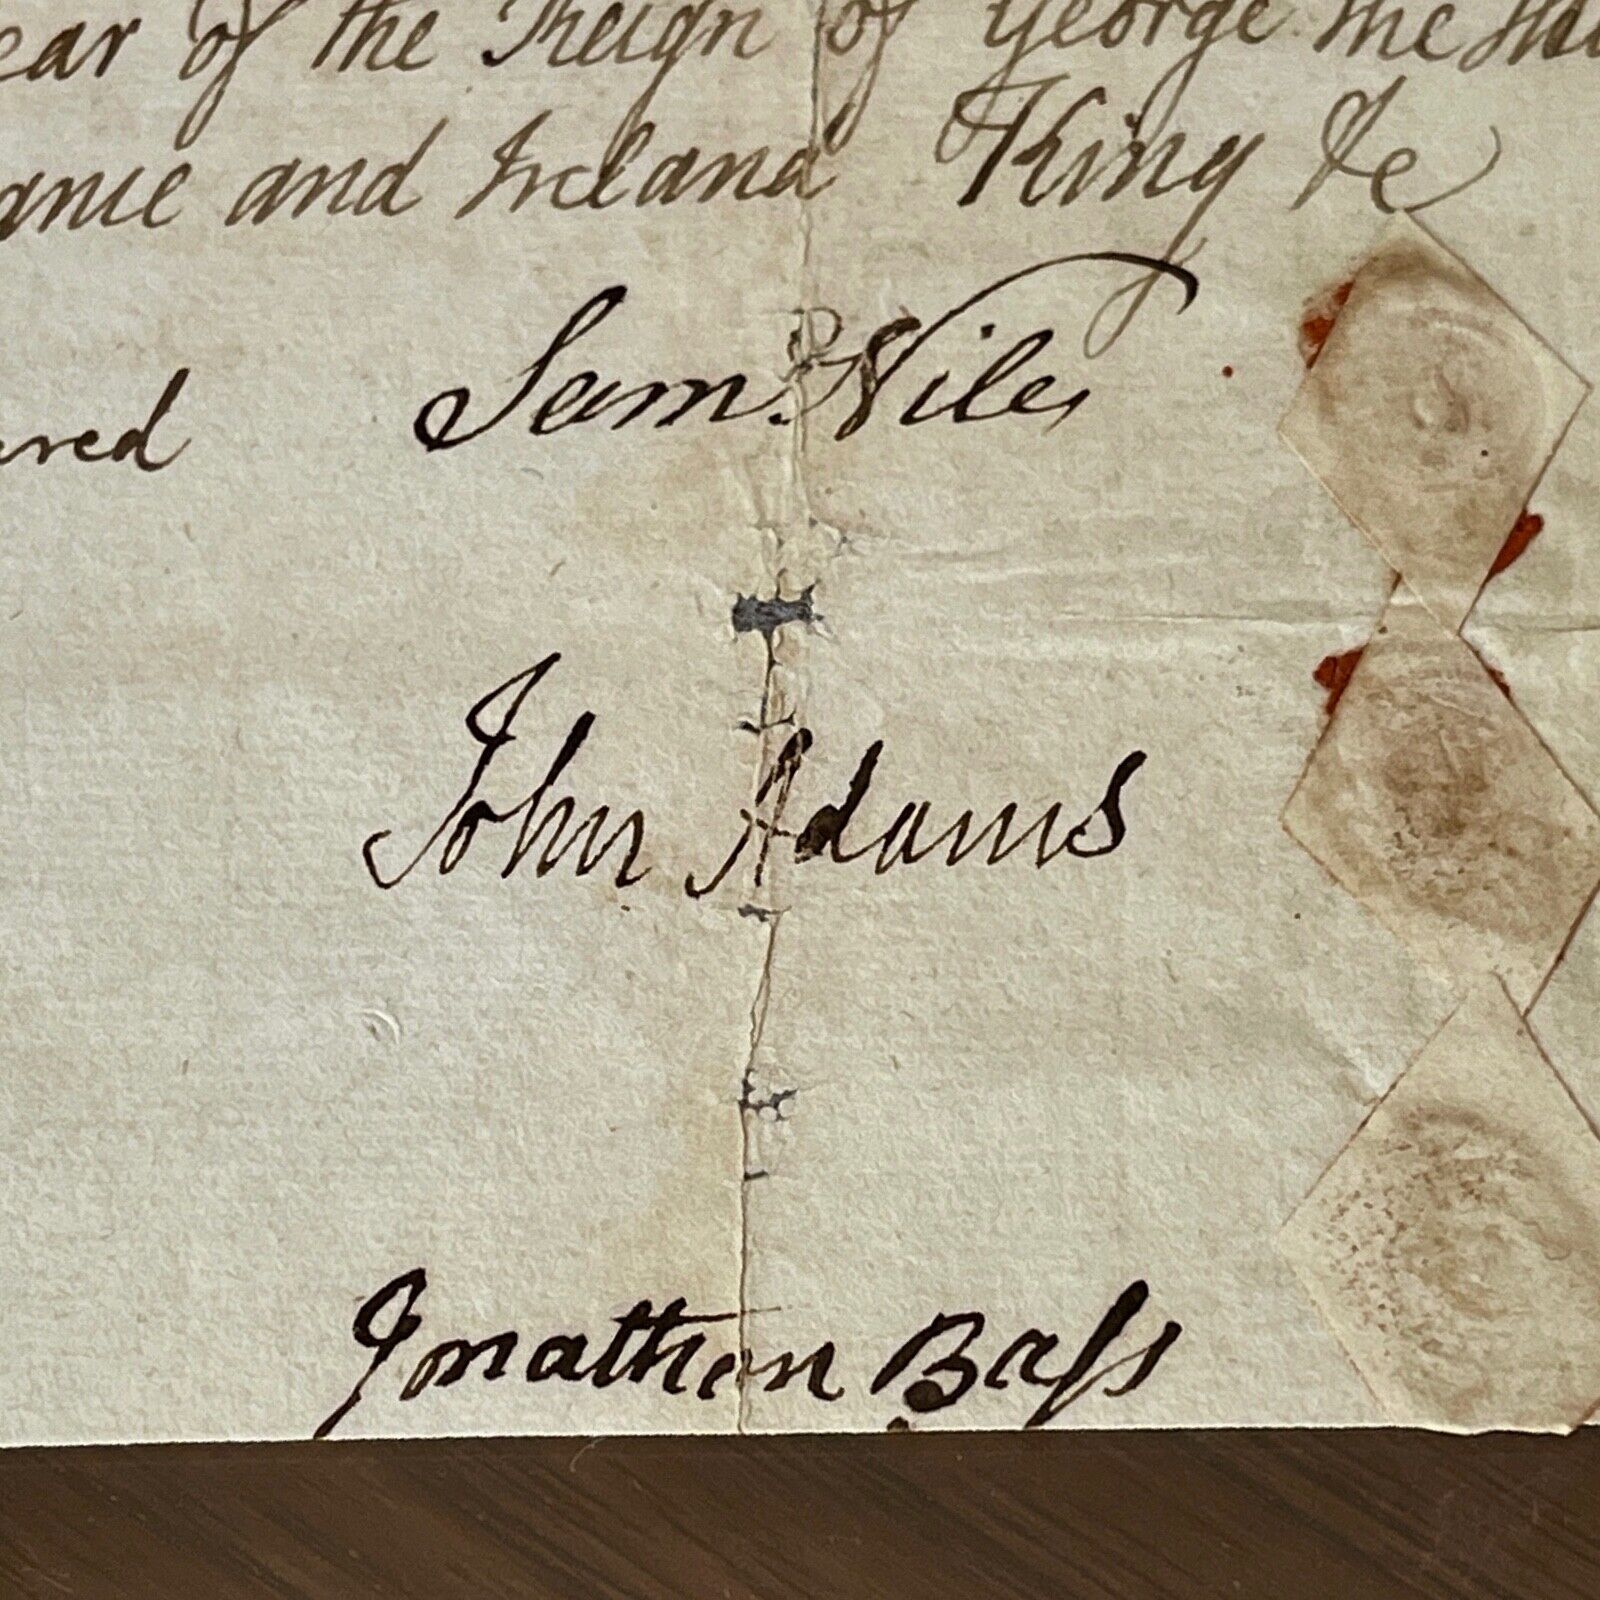 ear of the Reign of George the
anie and Ireland King &c
Sam.ll Niles
ered
John Adams
Jonathan Bass